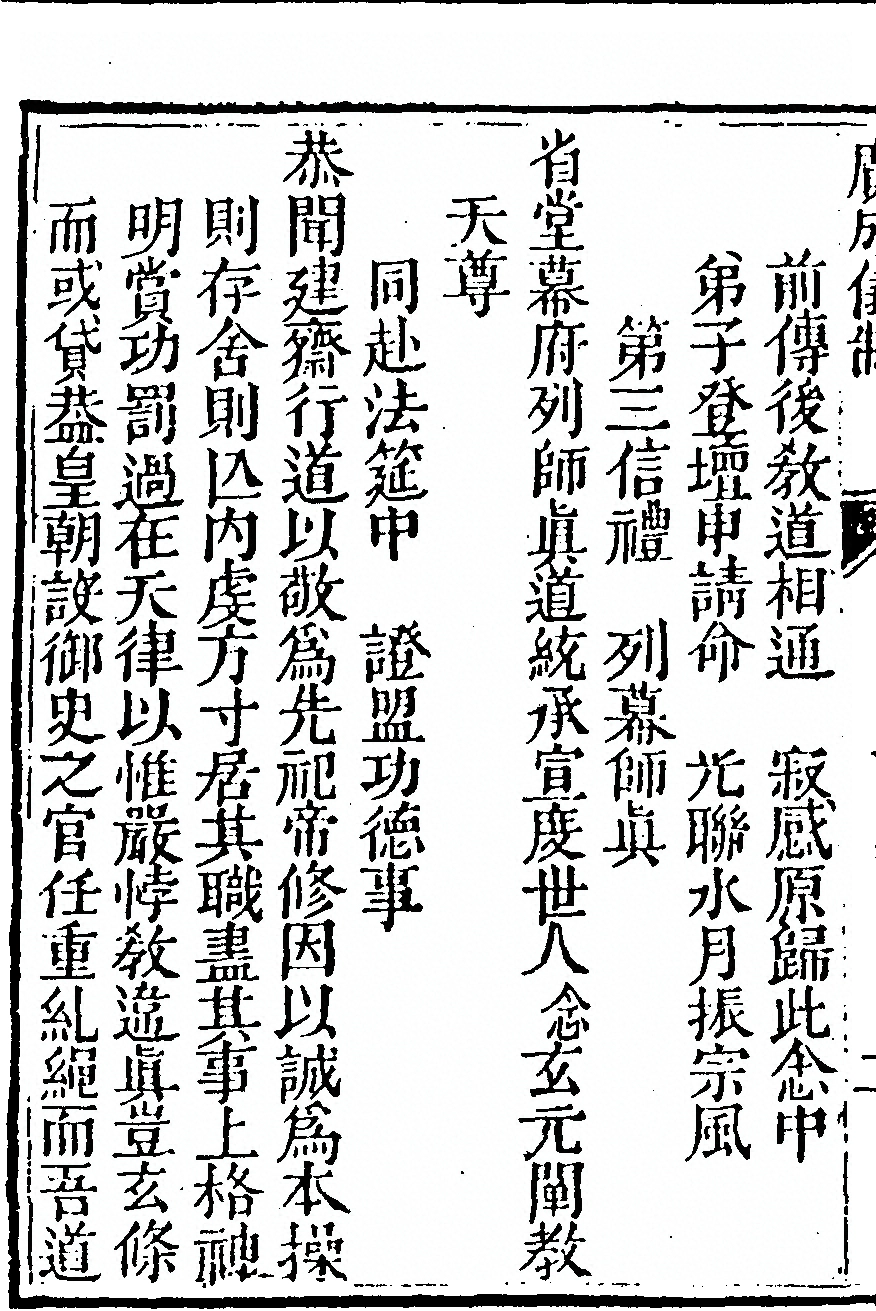 廣成儀制
前傳後教道相通　寂感原歸此念中
弟子登壇申請命　光聯水月振宗風
第三信禮　列幕師眞
省堂幕府列師眞道統承宣度世人　念玄元闡教
天尊
同赴法筵中　證盟功德事
恭聞建齋行道以敬爲先祀帝修因以誠爲本操
則存舍則亾內虔方寸居其職盡其事上格神
明賞功罰過在天律以惟嚴悖教違眞豈玄條
而或貸葢皇朝設御史之官任重糺繩而吾道